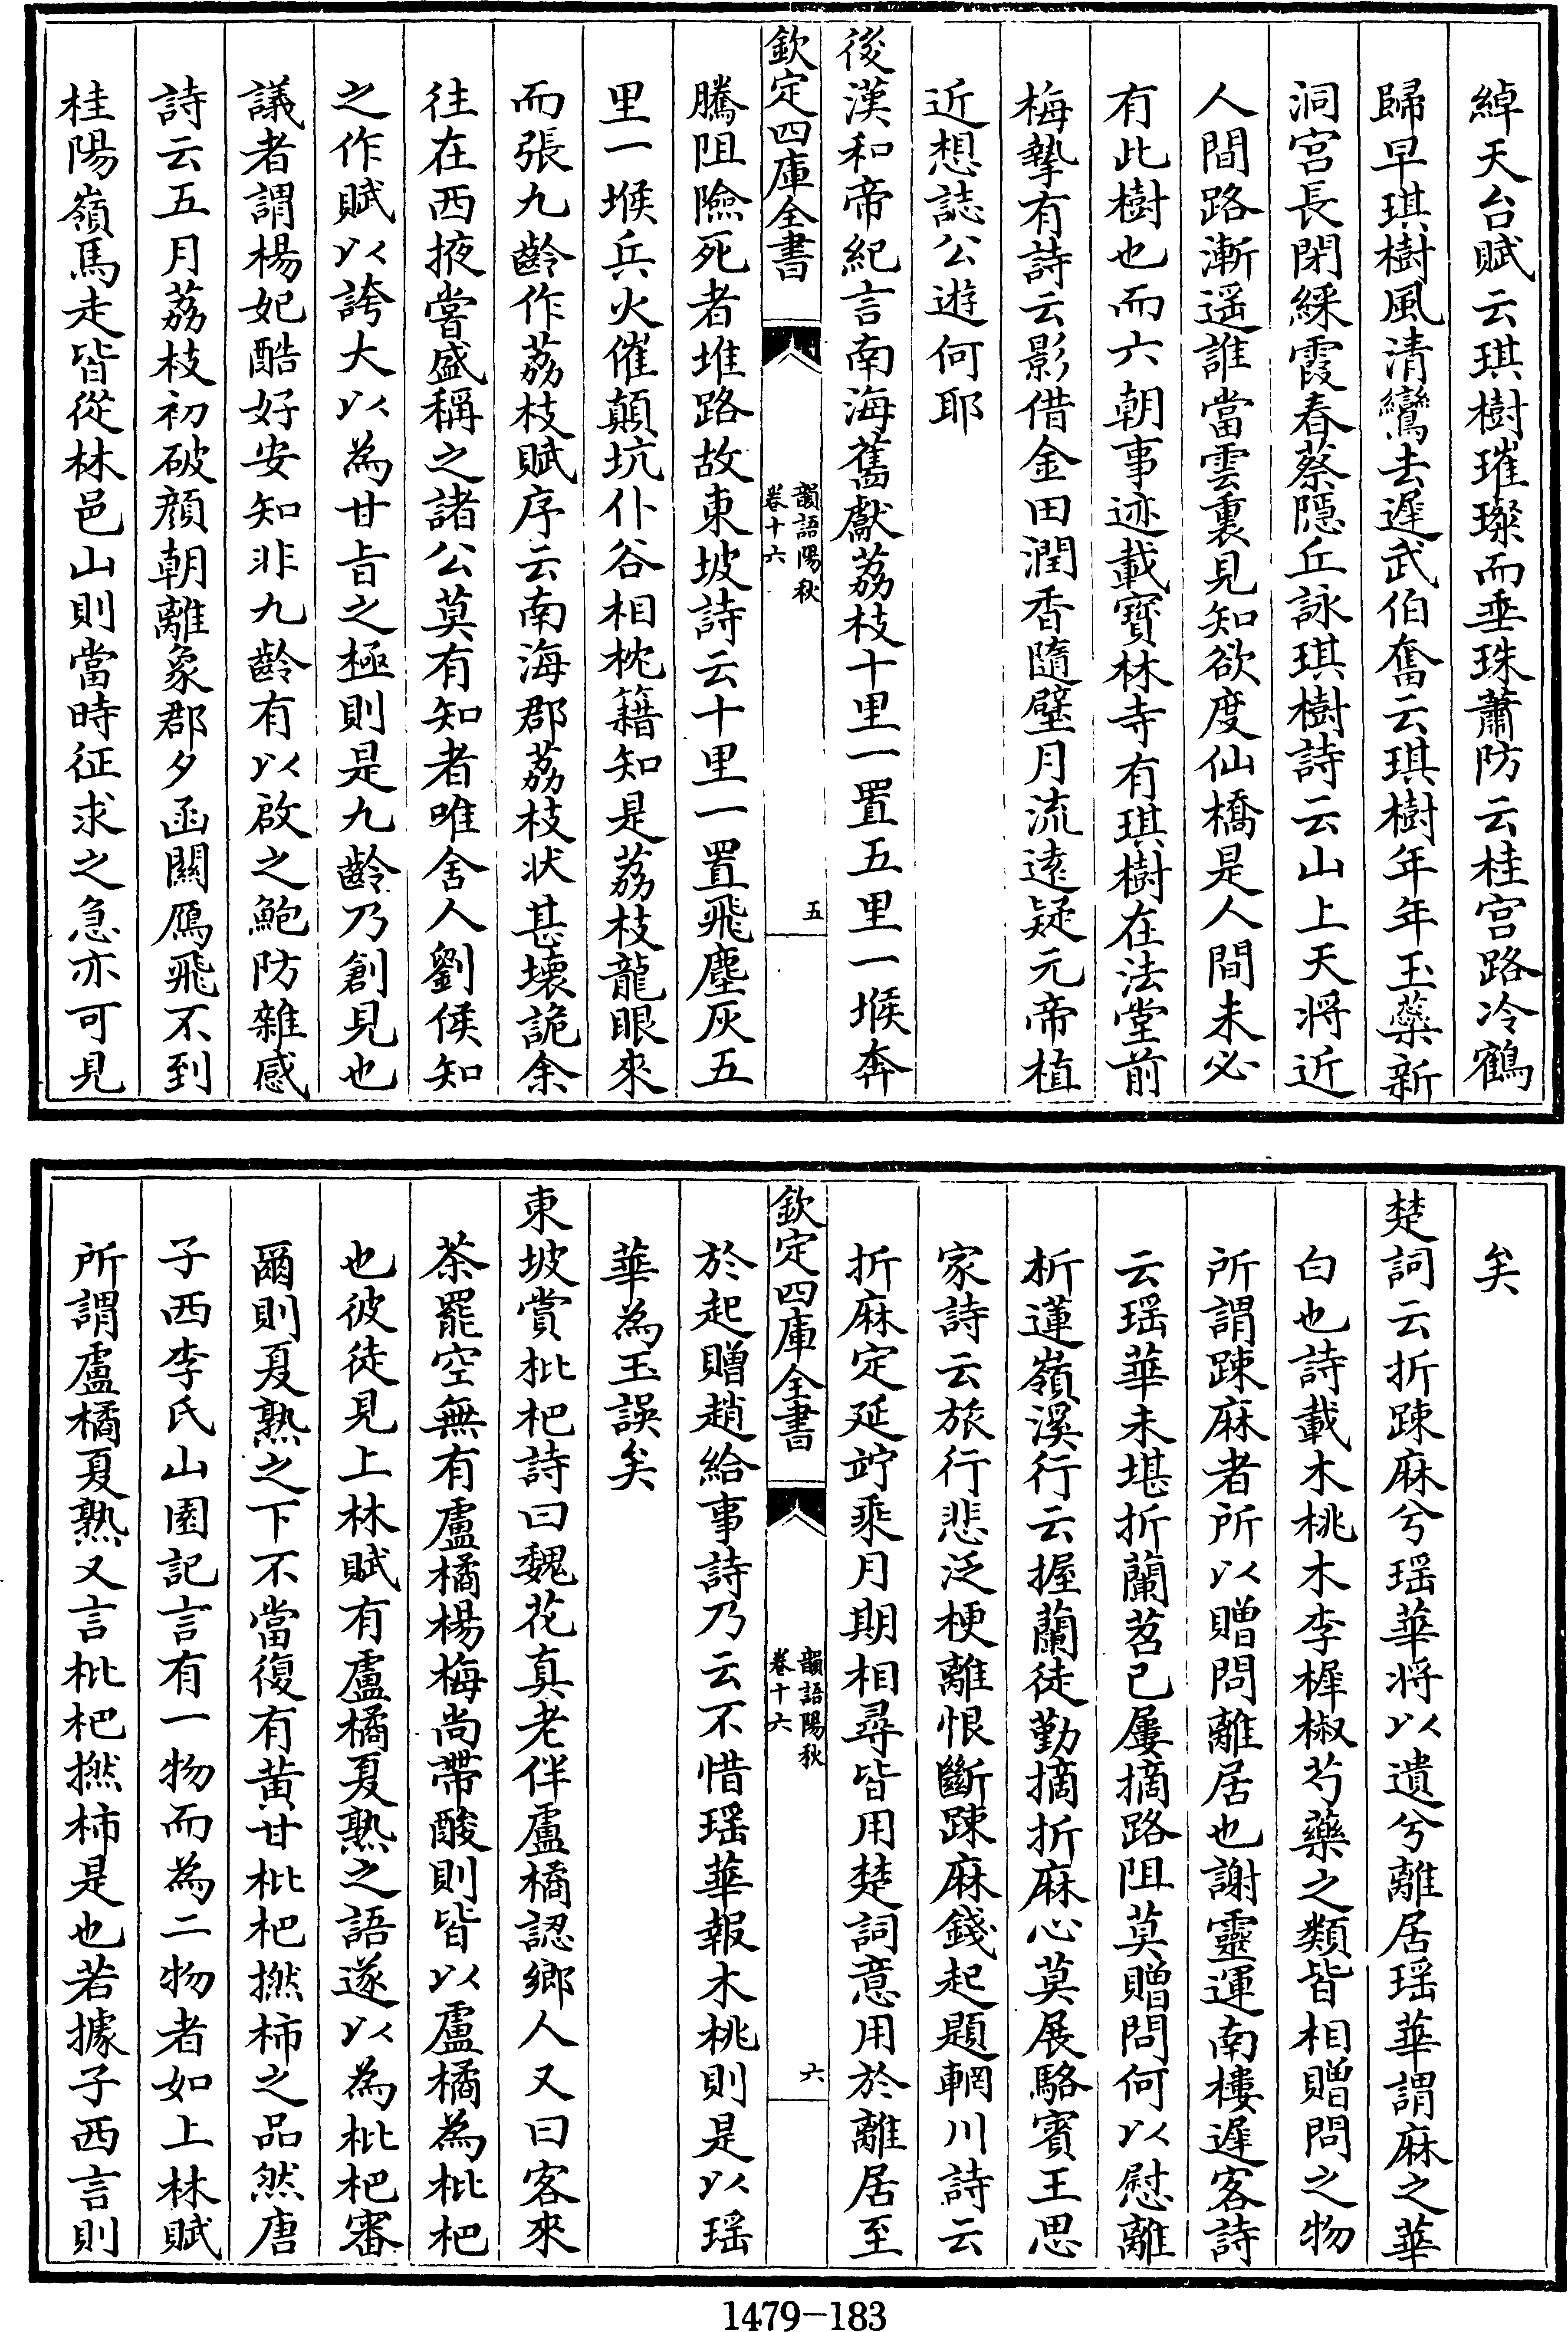 綽天台賦云琪樹璀璨而垂珠蕭防云桂宫路冷鶴
歸早琪樹風清鸞去遲武伯奮云琪樹年年玉蘂新
洞宫長閉綵霞春蔡隱丘詠琪樹詩云山上天將近
人間路漸遥誰當雲裏見知欲度仙橋是人間未必
有此樹也而六朝事迹載寳林寺有琪樹在法堂前
梅摯有詩云影借金田潤香隨璧月流遠疑元帝植
近想誌公遊何耶
後漢和帝紀言南海舊獻荔枝十里一置五里一堠奔
欽定四庫全書
韻語陽秋
卷十六
五
騰阻險死者堆路故東坡詩云十里一置飛塵灰五
里一堠兵火催顛坑仆谷相枕籍知是荔枝龍眼來
而張九齡作荔枝賦序云南海郡荔枝狀甚壊詭余
往在西掖嘗盛稱之諸公莫有知者唯舍人劉侯知
之作賦以誇大以為甘㫖之極則是九齡乃創見也
議者謂楊妃酷好安知非九齡有以啟之鮑防雜感
詩云五月荔枝初破顔朝離象郡夕函關鴈飛不到
桂陽嶺馬走皆從林邑山則當時征求之急亦可見
矣
楚詞云折踈麻兮瑶華將以遺兮離居瑶華謂麻之華
白也詩載木桃木李樨椒芍藥之類皆相贈問之物
所謂踈麻者所以贈問離居也謝靈運南樓遲客詩
云瑶華未堪折蘭苕已屢摘路阻莫贈問何以慰離
析蓮嶺溪行云握蘭徒勤摘折麻心莫展駱賓王思
家詩云旅行悲泛梗離恨斷踈麻錢起題輞川詩云
折麻定延竚乘月期相尋皆用楚詞意用於離居至
欽定四庫全書
韻語陽秋
卷十六
六
於起贈趙給事詩乃云不惜瑶華報木桃則是以瑶
華為玉誤矣
東坡賞枇杷詩曰魏花真老伴盧橘認鄉人又曰客來
茶罷空無有盧橘楊梅尚帶酸則皆以盧橘為枇杷
也彼徒見上林賦有盧橘夏熟之語遂以為枇杷審
爾則夏熟之下不當復有黄甘枇杷撚柿之品然唐
子西李氏山園記言有一物而為二物者如上林賦
所謂盧橘夏熟又言枇杷撚柿是也若據子西言則
1479-183